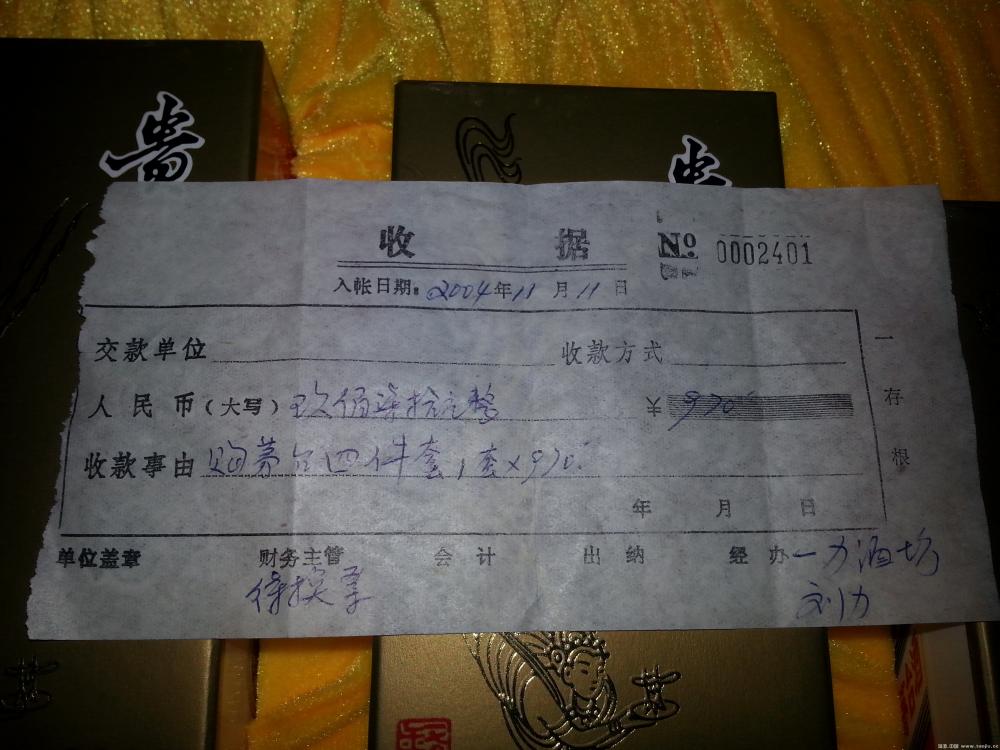 贵
收 据 № 0002401
入帐日期：2004年11月11日
交款单位 收款方式
人民币（大写）玖佰柒拾元整 ¥970
收款事由 购茅台四件套1套×970
年 月 日
一存根
单位盖章 财务主管 会计 出纳 经办 一力酒坊
刘力